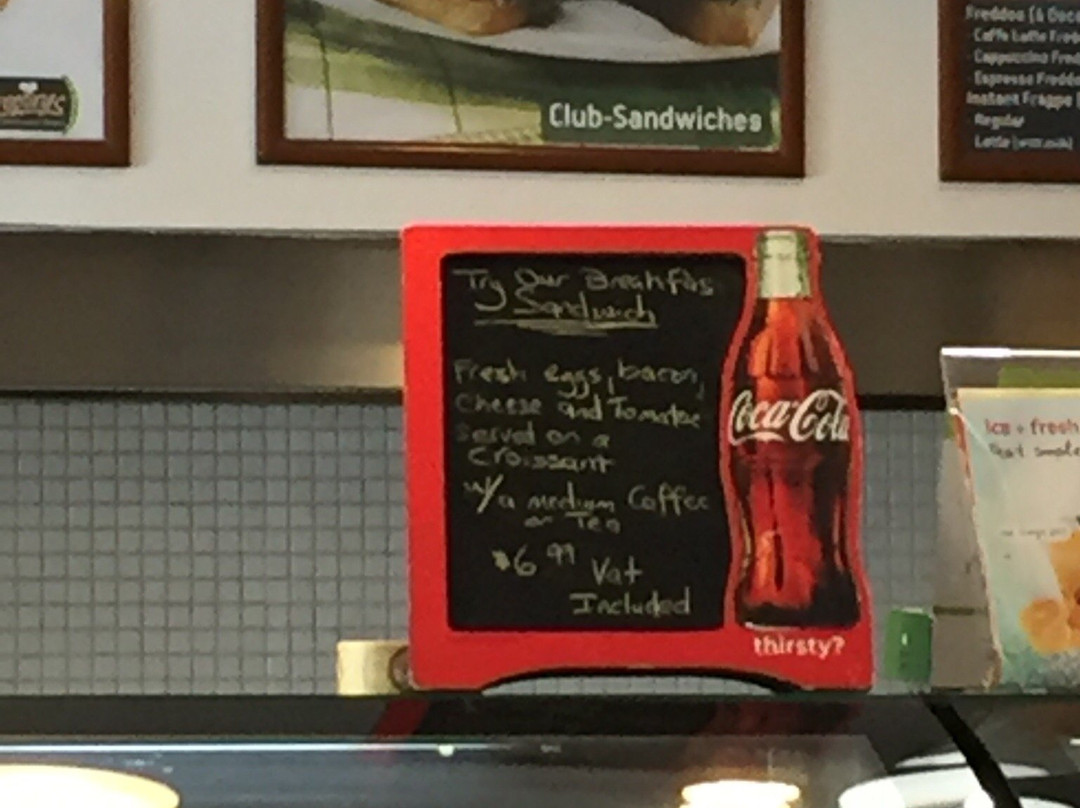 Club-Sandwiches
Freddos
Caffe Latte
Cappuccino
Espresso Freddo
Instant Frappe
Regular
Latte (with milk)
Try Our Breakfas
Sandwich
Fresh eggs, bacon,
Cheese and Tomatoe
Served on a
Croissant
w/a medium Coffee
or Tea
$6.99 Vat
Included
Coca-Cola
thirsty?
Ice + fresh